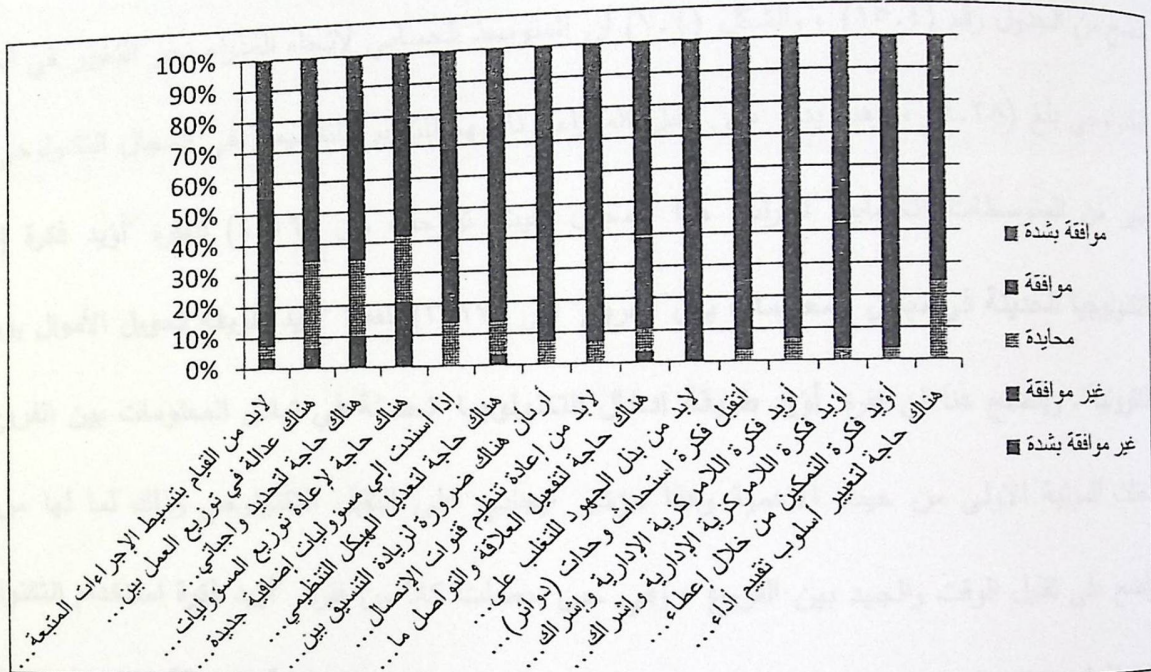 100%
90%
80%
70%
60%
50%
40%
30%
20%
10%
0%
موافقة بشدة
موافقة
محايدة
غير موافقة
غير موافقة بشدة
لابد من القيام بتبسيط الإجراءات المتبعة...
هناك عدالة في توزيع العمل بين...
هناك حاجة لتحديد واجباتي...
هناك حاجة لإعادة توزيع المسؤوليات...
إذا أسندت إلي مسؤوليات إضافية جديدة...
هناك حاجة لتعديل الهيكل التنظيمي...
أن هناك ضرورة لزيادة التنسيق بين...
لابد من إعادة تنظيم قنوات الاتصال...
هناك حاجة لتفعيل العلاقة والتواصل ما...
لابد من بذل الجهود للتغلب على...
أؤيد فكرة استحداث وحدات (دوائر)...
أؤيد فكرة اللامركزية الإدارية وإشراك...
أؤيد فكرة اللامركزية الإدارية وإشراك...
أؤيد فكرة التمكين من خلال إعطاء...
هناك حاجة لتغيير أسلوب تقييم أداء...